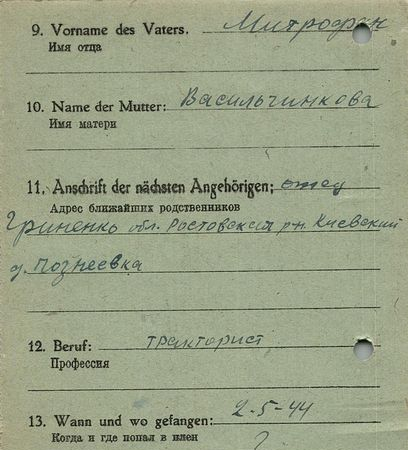 9. Vorname des Vaters. Митрофан
Имя отца
10. Name der Mutter: Васильчинкова
Имя матери
11. Anschrift der nächsten Angehörigen; отец
Адрес ближайших родственников
Гриненко обл. Ростовская рн. Киевский
д. Познеевка
12. Beruf: тракторист
Профессия
13. Wann und wo gefangen: 2-5-44
Когда и где попал в плен
?